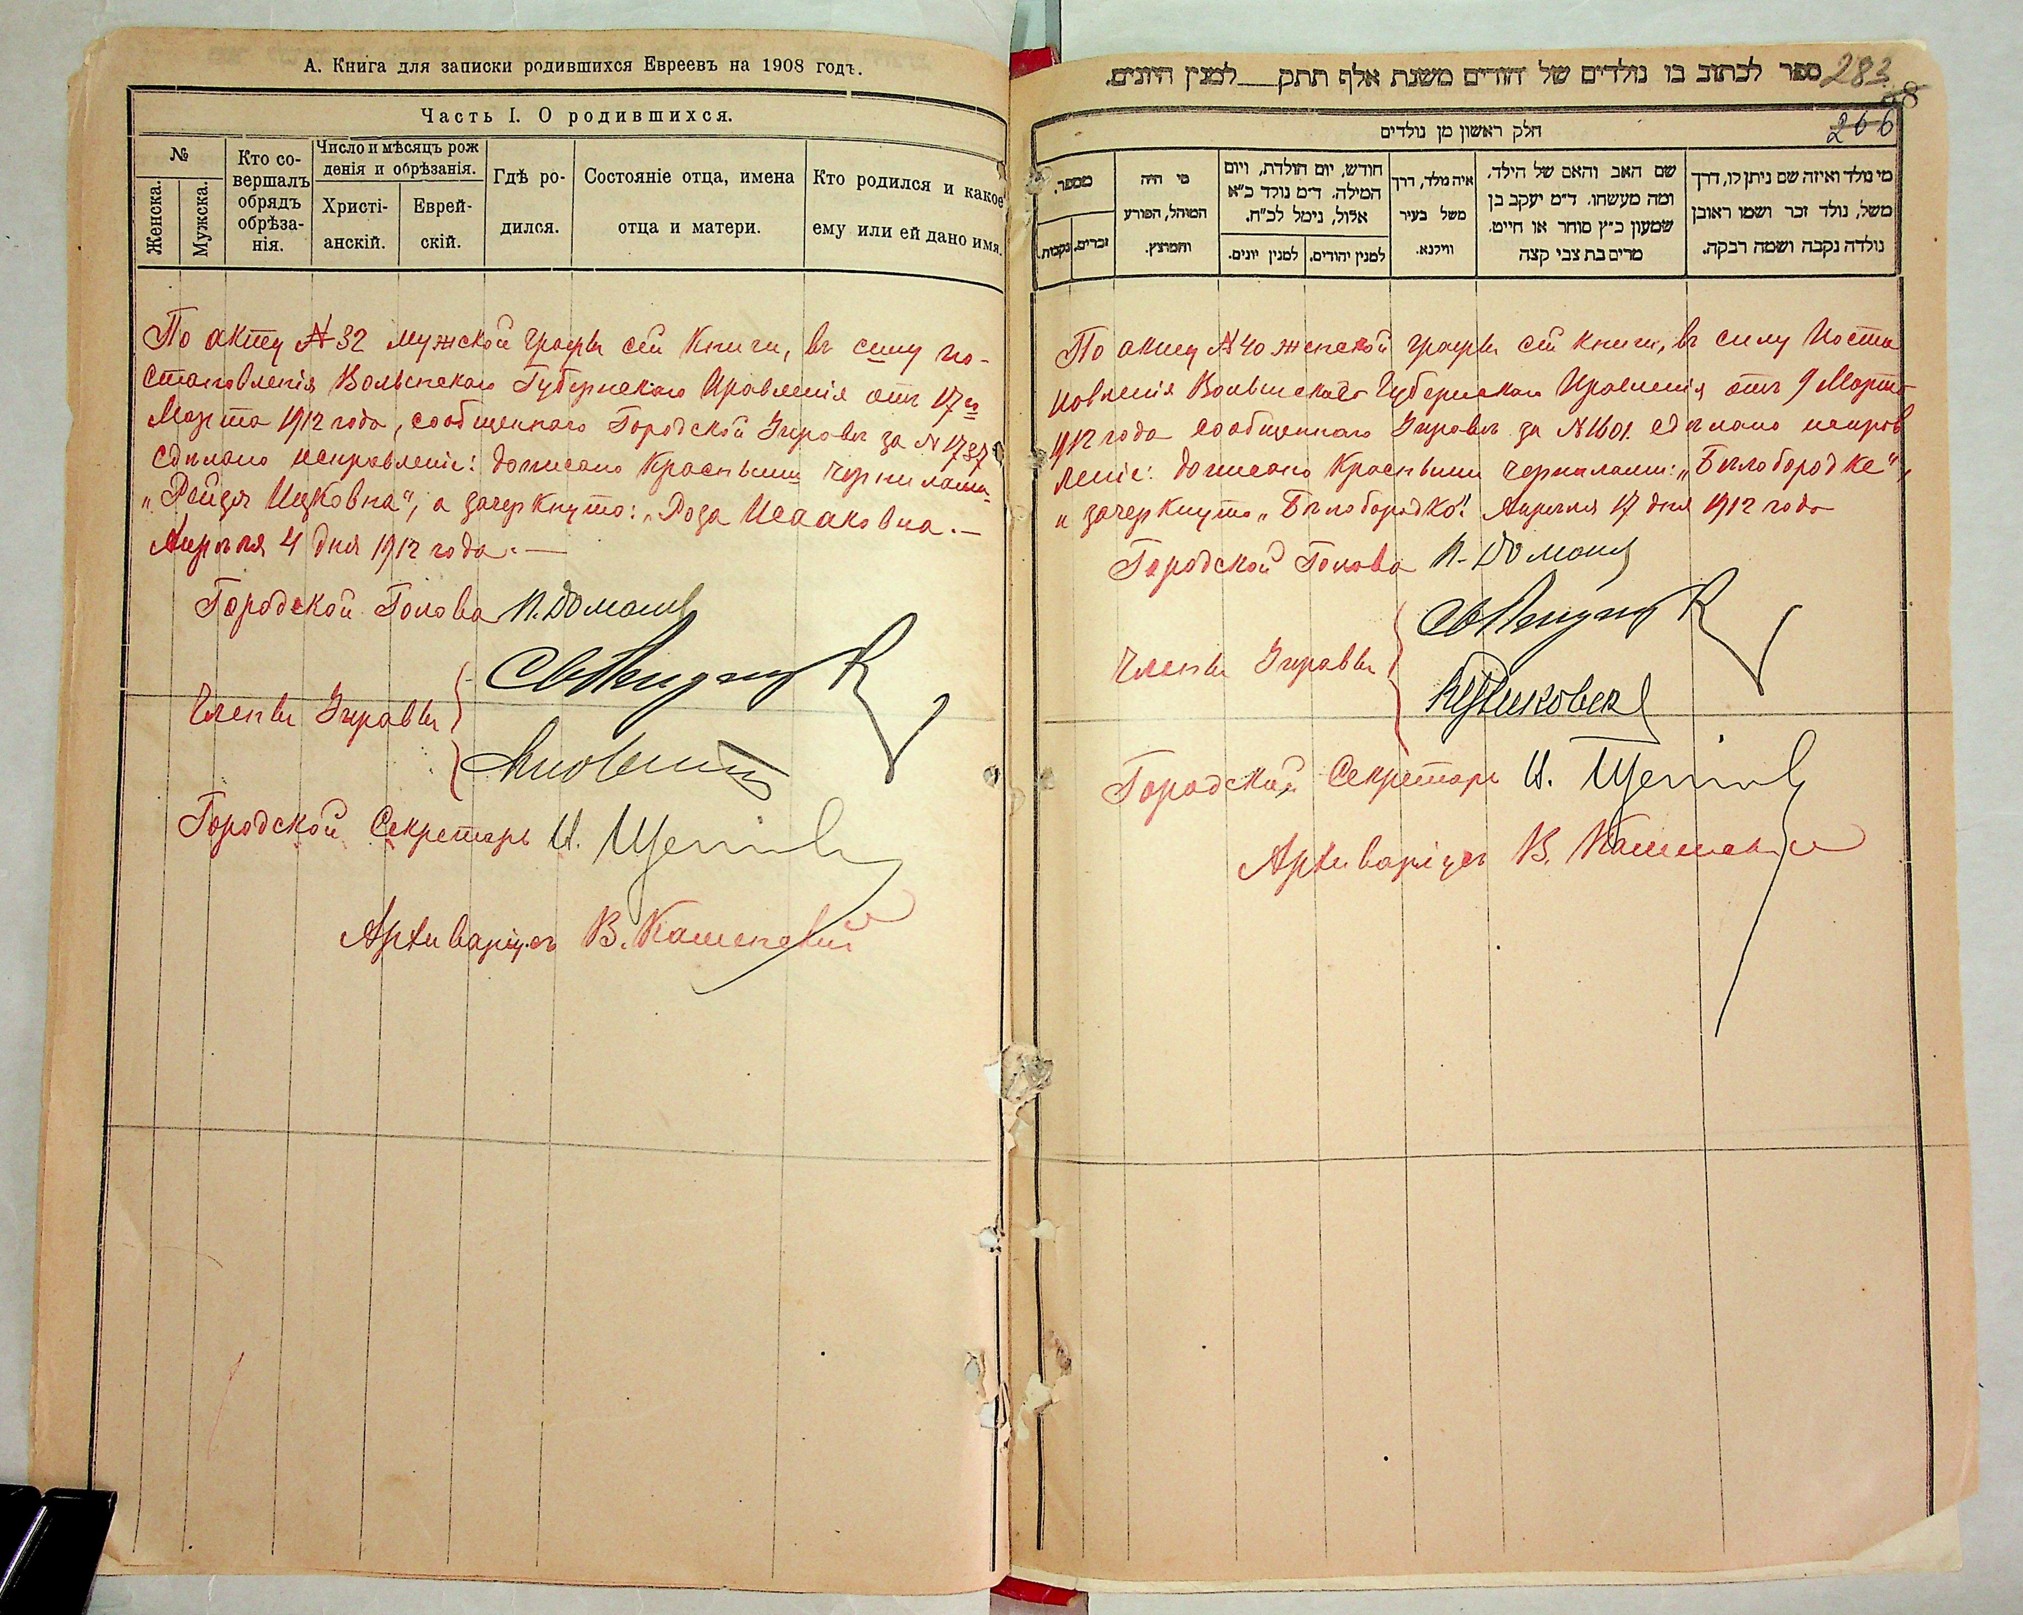 А. Книга для записки родившихся Евреевъ на 1908 годъ.
Часть I. О родившихся.
№
Женска.
Мужска.
Кто со-
вершалъ
обрядъ
обрѣза-
нія.
Число и мѣсяцъ рож
денія и обрѣзанія.
Христі-
анскій.
Еврей-
скій.
Гдѣ ро-
дился.
Состояніе отца, имена
отца и матери.
Кто родился и какое
ему или ей дано имя.
По акту № 32 мужской графы сей книги, въ силу по-
становленія Волынскаго Губернскаго Правленія отъ 17го
Марта 1912 года, сообщеннаго Городской Управѣ за № 1737
сдѣлано исправленіе: дописано красными чернилами
„Рейзя Ицковна", а зачеркнуто: „Роза Исааковна. —
Апрѣля 4 дня 1912 года. —
Городской Голова
Члены Управы
Городской Секретарь И.
Архиваріусъ В. Каменскій
ספר לכתוב בו נולדים של יהודים משנת אלף תתק__ למנין היונים.
283
68
266
חלק ראשון מן נולדים
מספר.
נקבות.
זכרים.
מי היה
המוהל, הפורע
והמוצץ.
חודש, יום הולדת, ויום
המילה. ד"מ נולד כ"א
אלול, נימל לכ"ח.
למנין יונים.
למנין יהודים.
איה נולד, דרך
משל בעיר
ווילנא.
שם האב והאם של הילד,
ומה מעשהו. ד"מ יעקב בן
שמעון כ"ץ סוחר או חייט.
מרים בת צבי קצה
מי נולד ואיזה שם ניתן לו, דרך
משל, נולד זכר ושמו ראובן
נולדה נקבה ושמה רבקה.
По акту № 40 женской графы сей книги, въ силу Поста
новленія Волынскаго Губернскаго Правленія отъ 9 Марта
1912 года сообщеннаго Управѣ за № 1601 сдѣлано исправ
леніе: дописано красными чернилами: „Бѣлобородке",
и зачеркнуто „Бѣлобородко". Апрѣля 17 дня 1912 года
Городской Голова
Члены Управы
Городской Секретарь И.
Архиваріусъ В. Каменскій